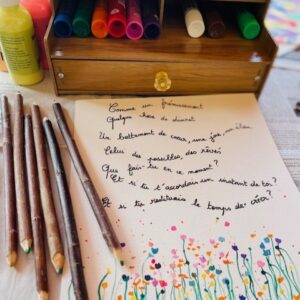 Comme un frémissement
Quelque chose de discret
Un battement de cœur, une joie, un élan
Celui des possibles, des rêves
Que fais-tu en ce moment?
Et si tu t'accordais un instant de toi?
Et si tu redevenais le temps de créer?